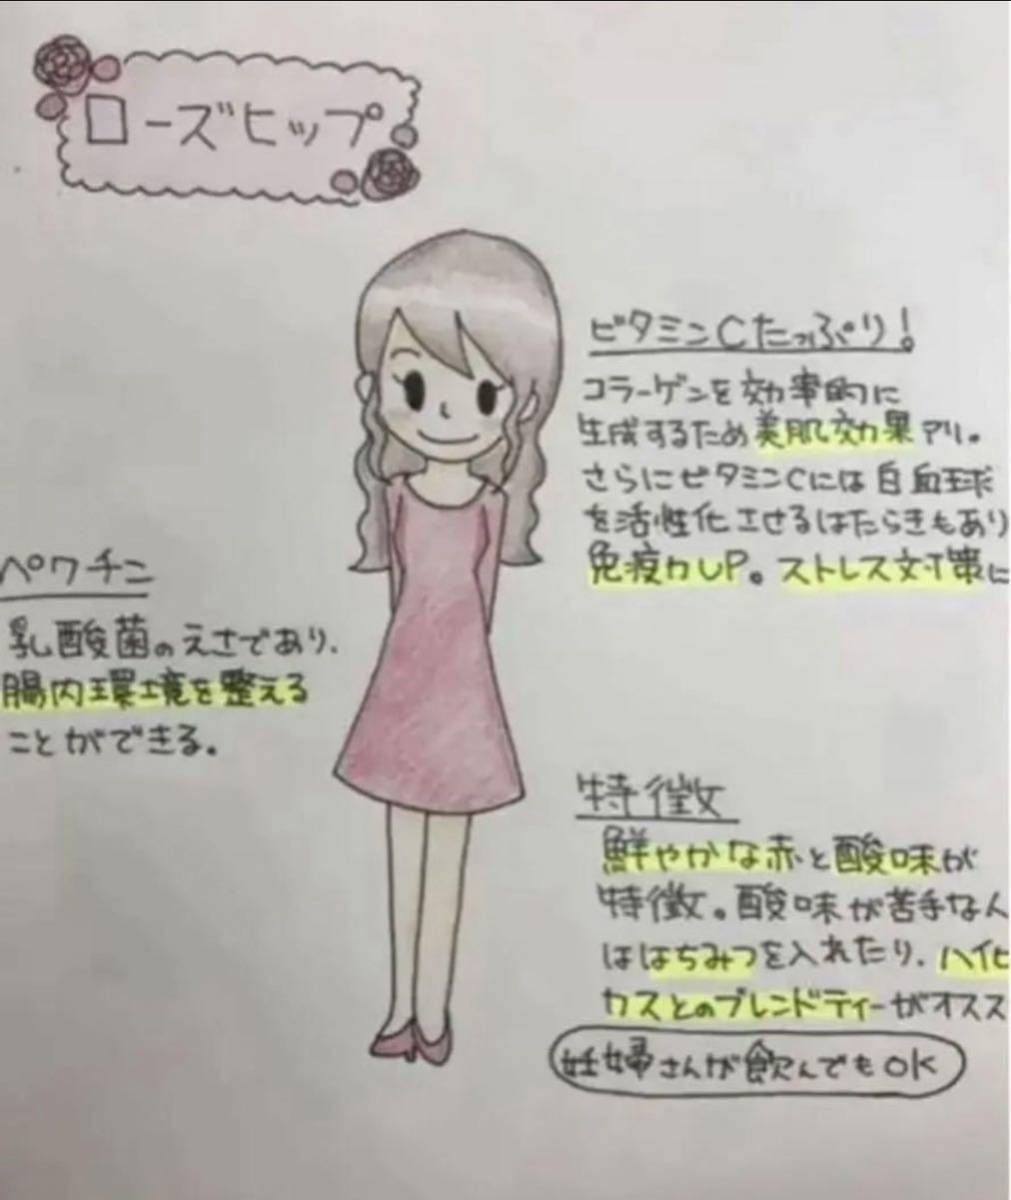 ローズヒップ
ビタミンCたっぷり!
コラーゲンを効率的に
生成するため美肌効果アリ。
さらにビタミンCには白血球
を活性化させるはたらきもあり
免疫力UP。ストレス対策に
ペクチン
乳酸菌のえさであり、
腸内環境を整える
ことができる。
特徴
鮮やかな赤と酸味が
特徴。酸味が苦手な人
ははちみつを入れたり、ハイビ
カスとのブレンドティーがオスス
妊婦さんが飲んでもOK